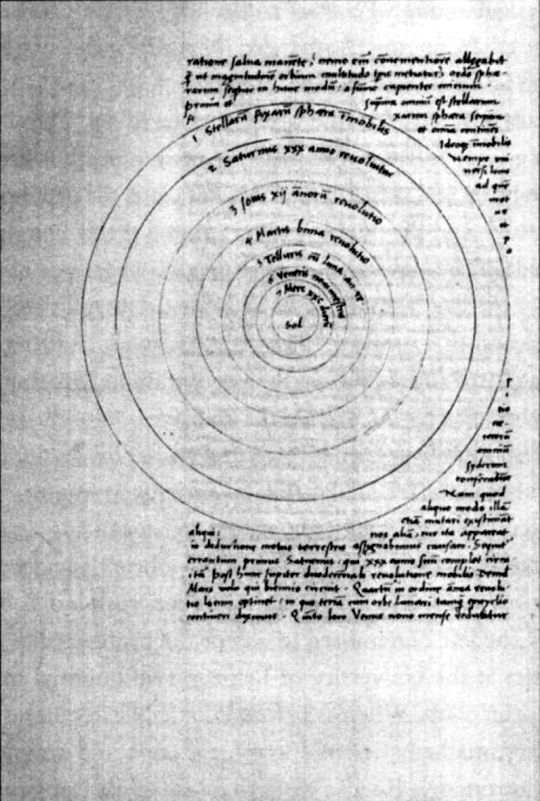 ratione salva manēte, nemo em̄ convenientiorē allegabit
q̄ ut magnitudinē orbium multitudo tp̄is metiatur, ordo sphæ-
rarum sequitur in hunc modū: a sūmo capientes initium.
prima et suprema omniū est stellarum
fi xarum sphæra seipsam
et omnia continēs
Ideoq; īmobilis
nempe uni
versi locus
ad quē
mot
us
et
p
o
1 Stellarū fixarū sphæra īmobilis
2 Saturnus xxx anno revoluitur
3 Jovis xij añorū revolutio
4 Martis bima revolutio
5 Telluris cū Luna an. re.
6 Veneris nonimestris
7 Merc xxc dierū
Sol
r
i
tio
ne
ceterū
omniū
syderum
conferatur
Nam quod
aliquo modo illā
etiā mutari existimāt
aliqui: nos aliā, cur ita appareat
in deductione motus terrestris assignabimus causam. Sequitur
errantium primus Saturnus: qui xxx anno suū complet circu
itū post hunc Jupiter duodecennali revolutione mobilis Deinde
Mars volo qui biennio circuit. Quartū in ordine ānua revolu
tio locum optinet: in quo terrā cum orbe Lunari tanq̄ epicyclio
contineri diximus. Quīto loco Venus nono mense reducitur